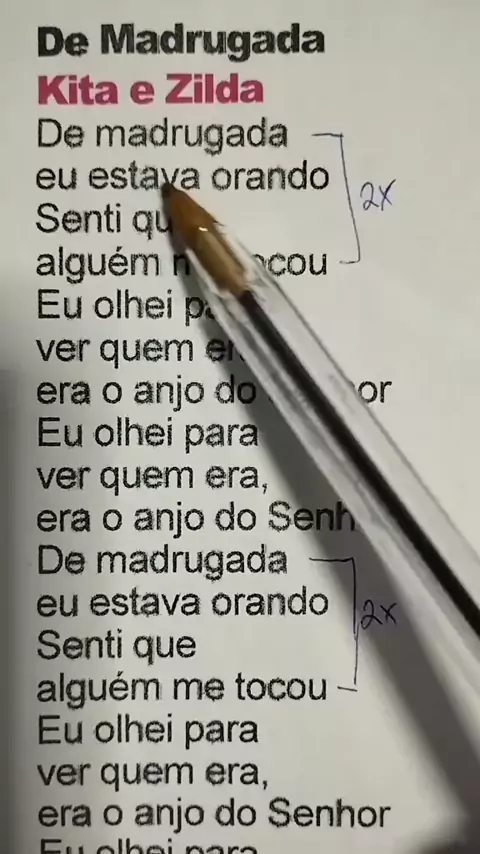 De Madrugada
Kita e Zilda
De madrugada
eu estava orando
2x
Senti
alguém
Eu olhei
ver quem
era o anjo do
Eu olhei para
ver quem era,
era o anjo do
De madrugada
eu estava orando
2x
Senti que
alguém me tocou
Eu olhei para
ver quem era,
era o anjo do Senhor
Eu olhei para